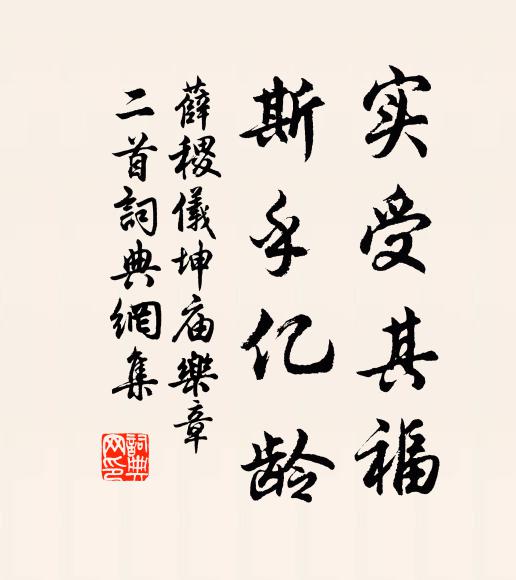 实受其福
斯乎亿龄
薛稷儀坤庙樂章
二首詞典網集
詞典
网印